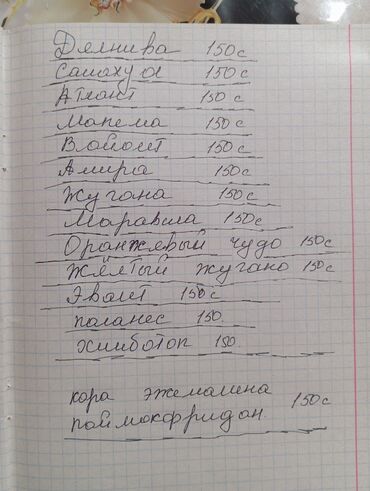 Делнива 150 с
Самохул 150 с
Атлант 150 с
Мапема 150 с
Вайолит 150 с
Амира 150 с
Жугана 150 с
Маравила 150 с
Оранжевый чудо 150 с
Жёлтый жугано 150 с
Эвалт 150 с
паланес 150
химботоп 150
кара эжемалина 150 с
паймокфридан